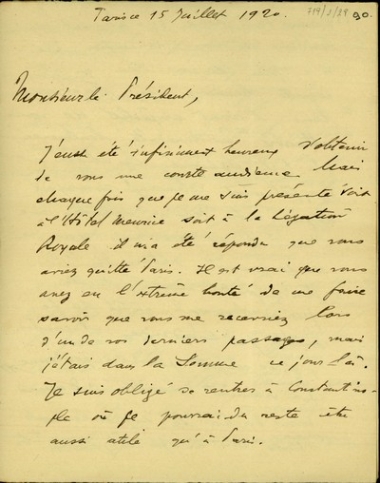 Paris ce 15 Juillet 1920.
90
Monsieur le Président,
J'eusse été infiniment heureux d'obtenir
de vous une courte audience. Mais
chaque fois que je me suis présenté soit
à l'Hôtel Meurice soit à la Légation
Royale il m'a été répondu que vous
aviez quitté Paris. Il est vrai que vous
avez eu l'extrême bonté de me faire
savoir que vous me recevriez lors
d'un de vos derniers passages, mais
j'étais dans la Somme ce jour là.
Je suis obligé de rentrer à Constantino-
ple où je pourrai du reste être
aussi utile qu'à Paris.